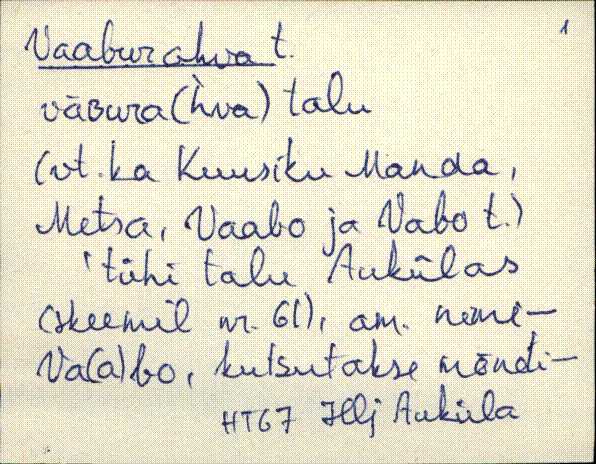 1
Vaaburahva t.
vāʙura(h̀va) talu
(vt. ka Kuusiku Manda,
Metsa, Vaabo ja Vabo t.)
'tühi talu Aukülas
(skeemil nr. 61), am. nimi –
Va(a)bo, kutsutakse mõndi –
HT67 Jllj Auküla